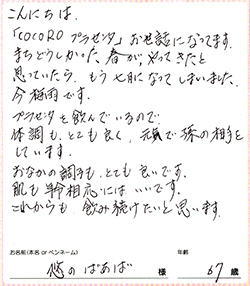 こんにちは。
「COCORO プラセンタ」お世話になってます。
まちどうしかった、春がやってきたと
思っていたら、もう七月になってしまいました、
今梅雨です。
プラセンタを飲んでいるので
体調も、とても良く、元気で孫の相手を
しています。
おなかの調子も、とても良いです。
肌も年齢相応にはいいです。
これからも飲み続けたいと思います。
お名前(本名 or ペンネーム)
年齢
悠のばあば 様 67 歳